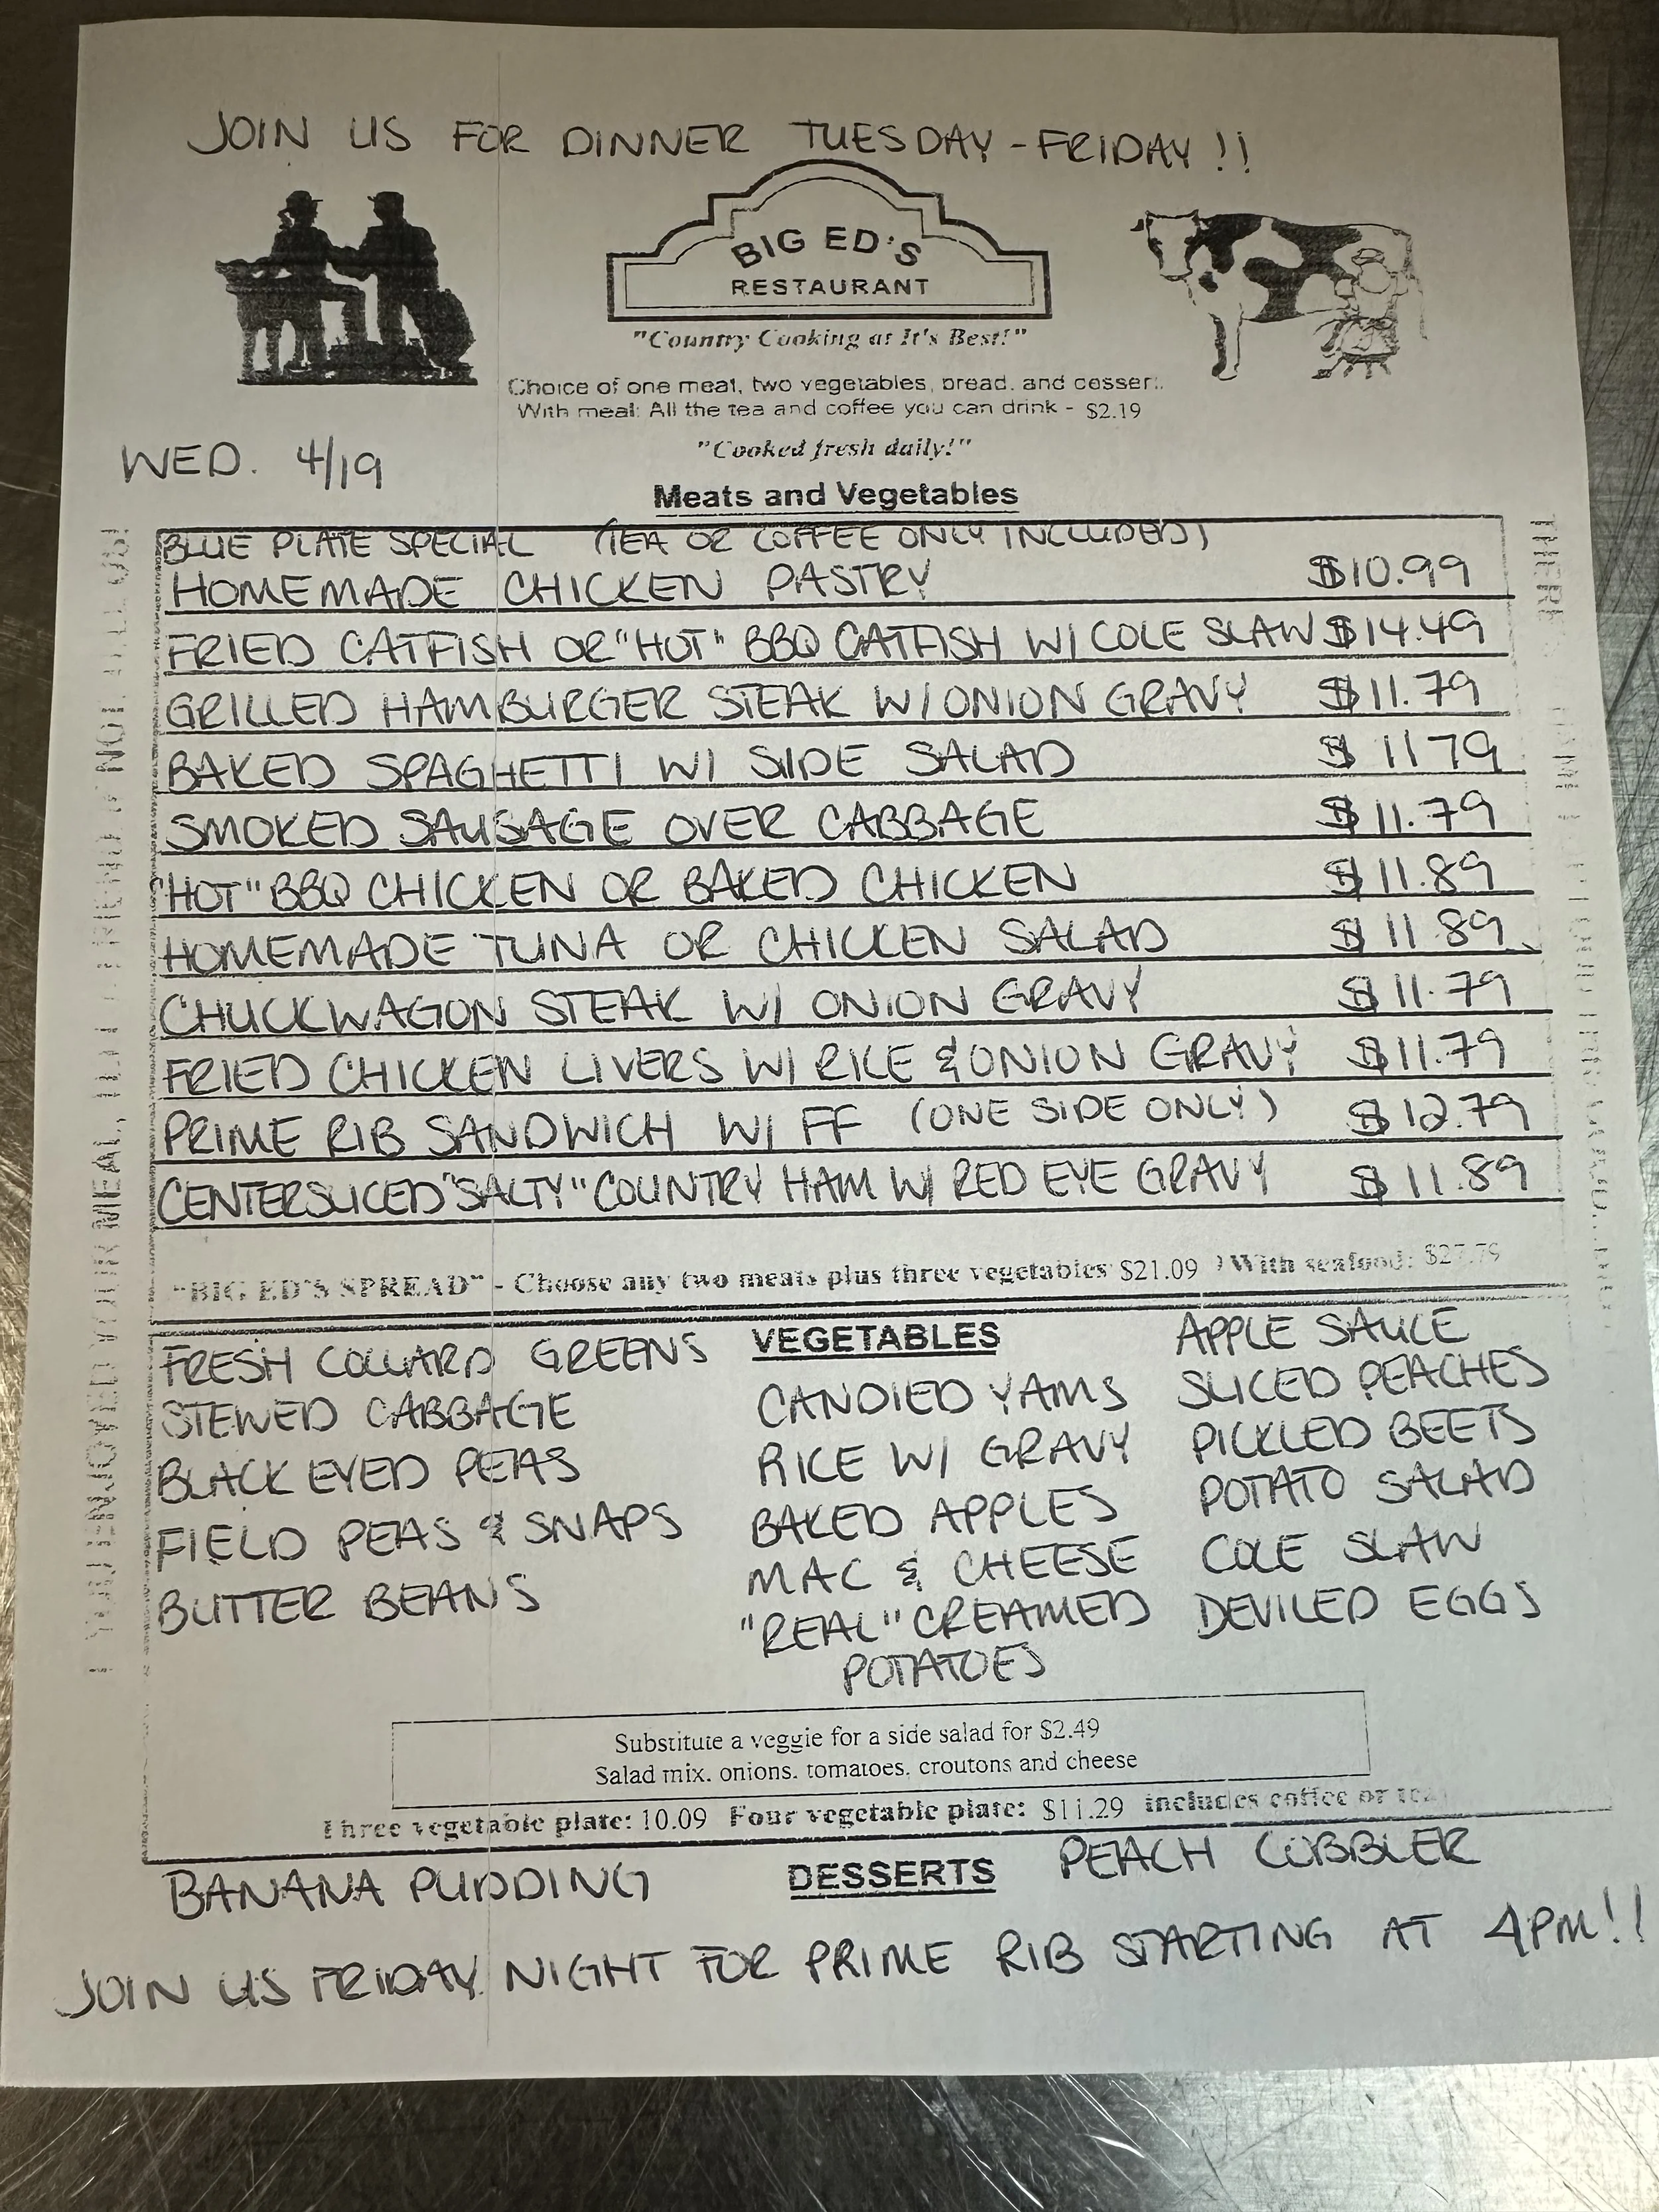 JOIN US FOR DINNER TUESDAY - FRIDAY !!
BIG ED'S
RESTAURANT
"Country Cooking at It's Best!"
Choice of one meat, two vegetables, bread, and dessert.
With meal: All the tea and coffee you can drink - $2.19
"Cooked fresh daily!"
WED. 4/19
Meats and Vegetables
BLUE PLATE SPECIAL (TEA OR COFFEE ONLY INCLUDED)
HOMEMADE CHICKEN PASTRY $10.99
FRIED CATFISH OR "HOT" BBQ CATFISH W/ COLE SLAW $14.49
GRILLED HAMBURGER STEAK W/ ONION GRAVY $11.79
BAKED SPAGHETTI W/ SIDE SALAD $11 79
SMOKED SAUSAGE OVER CABBAGE $11.79
"HOT" BBQ CHICKEN OR BAKED CHICKEN $11.89
HOMEMADE TUNA OR CHICKEN SALAD $11 89
CHUCKWAGON STEAK W/ ONION GRAVY $11.79
FRIED CHICKEN LIVERS W/ RICE & ONION GRAVY $11.79
PRIME RIB SANDWICH W/ FF (ONE SIDE ONLY) $12.79
CENTERSLICED "SALTY" COUNTRY HAM W/ RED EYE GRAVY $11.89
"BIG ED'S SPREAD" - Choose any two meats plus three vegetables $21.09 ) With seafood: $27.79
VEGETABLES
FRESH COLLARD GREENS
STEWED CABBAGE
BLACK EYED PEAS
FIELD PEAS & SNAPS
BUTTER BEANS
CANDIED YAMS
RICE W/ GRAVY
BAKED APPLES
MAC & CHEESE
"REAL" CREAMED
POTATOES
APPLE SAUCE
SLICED PEACHES
PICKLED BEETS
POTATO SALAD
COLE SLAW
DEVILED EGGS
Substitute a veggie for a side salad for $2.49
Salad mix, onions, tomatoes, croutons and cheese
Three vegetable plate: 10.09 Four vegetable plate: $11.29 includes coffee or tea
DESSERTS
BANANA PUDDING
PEACH COBBLER
JOIN US FRIDAY NIGHT FOR PRIME RIB STARTING AT 4PM!!
YOU ENJOYED YOUR MEAL, TELL A FRIEND IF NOT, TELL US!